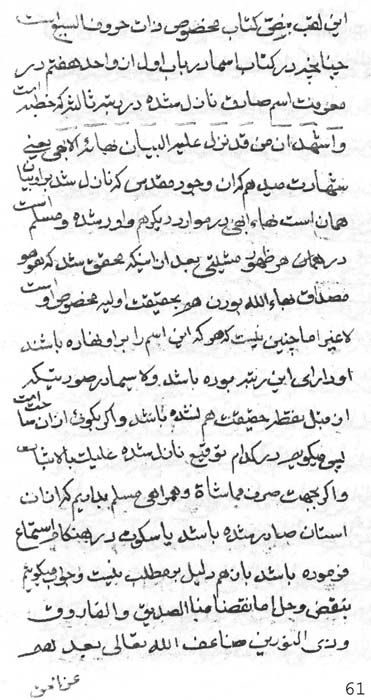 این لقب بنص کتاب مخصوص ذات حروف السبع است
چنانچه در کتاب اسماء در باب اول از واحد هفتم در
معرفت اسم صادق نازل شده در رتبه ثالث که خطبه است
و اشهد ان من قد نزل علیه البیان بهاءه الابهی یعنی
شهادت میدهم که ان وجود مقدس که نازل شد بر او بیان
همان است بهاء ابهی در موارد دیگر هم وارد شده و مسلم است
در همان هر ظهور قبلی بعد از اینکه محقق شد که هو هو
مصداق بهاء الله بودن هم بحقیقت اولیه مخصوص او است
لا غیر اما چنین نیست که هر که این اسم را بر او نهاده باشند
او دارای این رتبه بوده باشد ولا سیما در صورتیکه
از قبل نقطه حقیقت هم نشده باشد و اگر بگوئی از ان ساحت است
پس میگویم در کدام توقیع نازل شده علیک بالاثبات
و اگر بجهت صرف مماشاة و همراهی مسلم بداریم که از ان
استان صادر شده باشد یا سکوت در هنگام استماع
فرموده باشد باز هم دلیل بر مطلب نیست و جواب میگویم
بنقض و حل اما نقضا فبا الصدیق والفاروق
و ذی النورین ضاعف الله تعالی بعد لهم
عذابهم
61